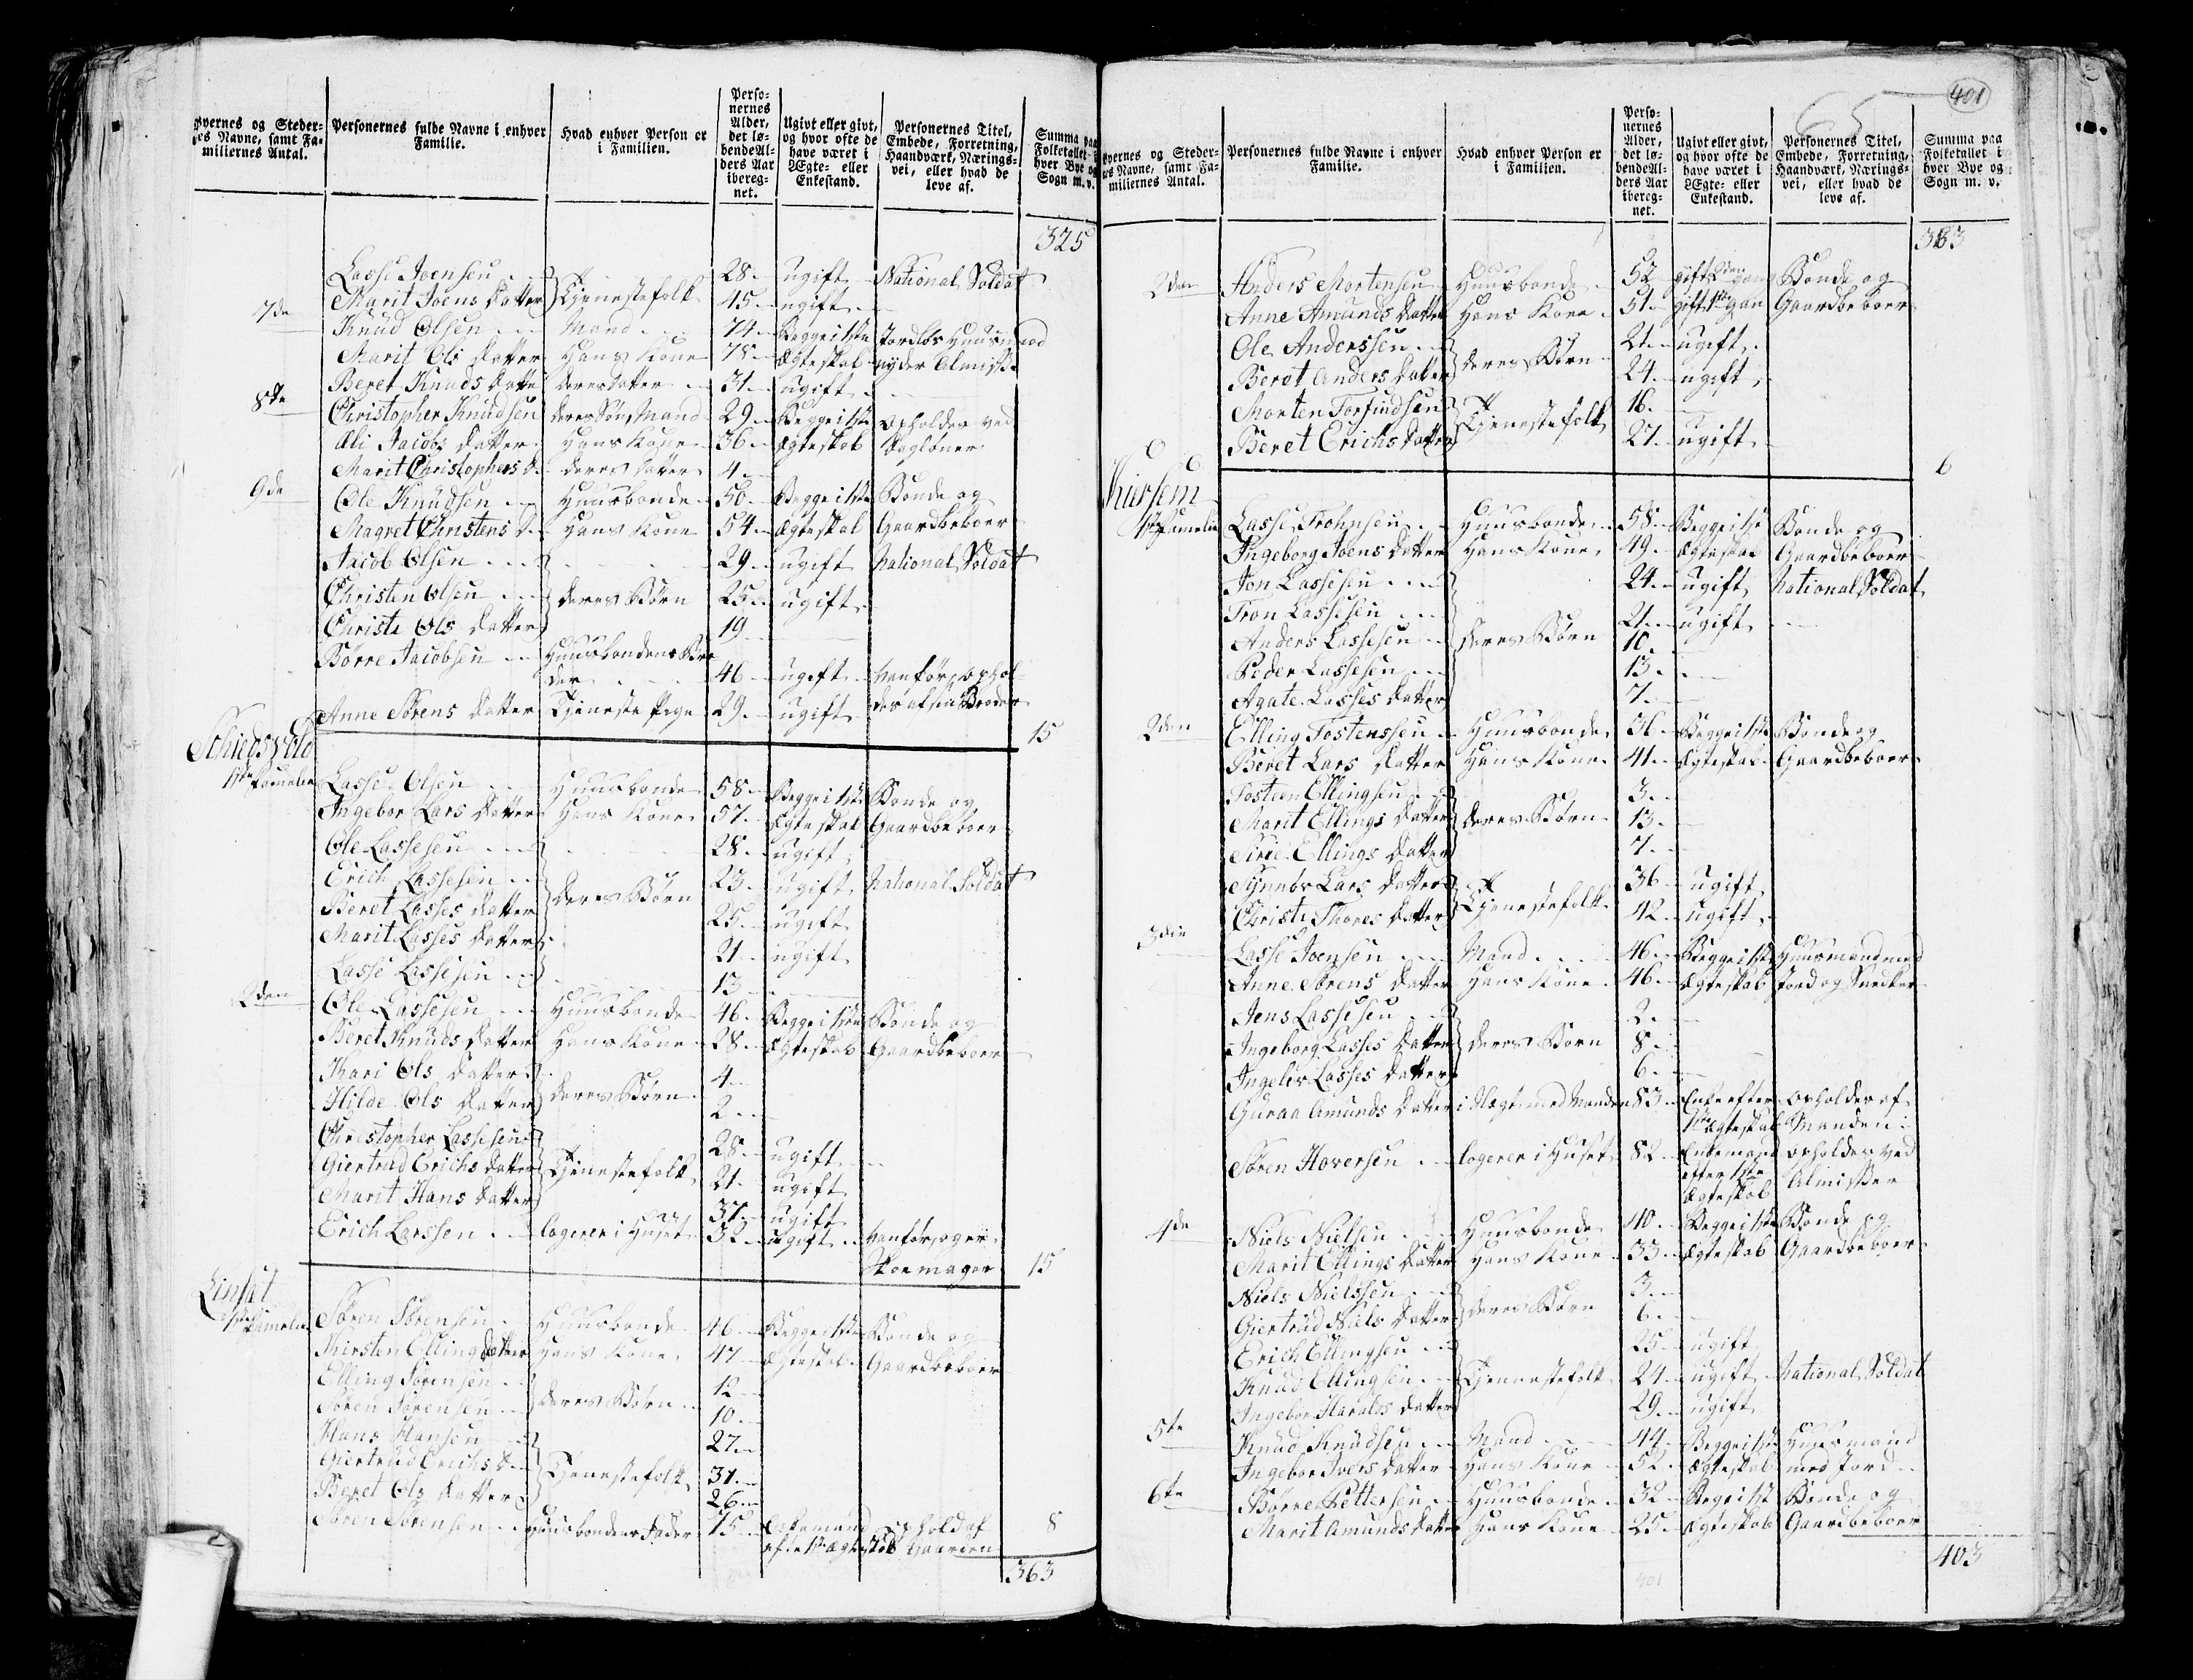 Personernes fulde Navne i enhver Familie.
Hvad enhver Person er i Familien.
Personernes Alder, det løbende Alders Aar iberegnet.
Ugivt eller givt, og hvor ofte de have været i Ægte- eller Enkestand.
Personernes Titel, Embede, Forretning, Haandværk, Næringsvei, eller hvad de leve af.
Summa paa Folketallet i hver Bye og Sogn m. v.
325
Lasse Joensen 28. ugift National Soldat
Marit Joens Datter Tjenestefolk 45. ugift
7de Knud Olsen Mand 74. Begge i 1ste
Marit Ols Datter Hans Kone 78. Ægteskab nyder Almisse
Beret Knuds Datte deres Datter 31. ugift
8de Christopher Knudsen deres Søn, Mand 29. Begge i 1ste opholder ved
Ali Jacobs Datter Hans Kone 36. Ægteskab Dagløner
Marit Christophers D. deres Datter 4.
9de Ole Knudsen Huusbonde 50. Begge i 1ste Bonde og
Magret Christens D. Hans Kone 54. Ægteskab Gaardbeboer
Jacob Olsen 29. ugift National Soldat
Christen Olsen deres Børn 25. ugift
Christi Ols Datter 19
Børre Jacobsen Huusbondens Bro
der 46 ugift vanfør, ophol
des af sin Broder
Anne Sørens Datter Tjeneste Pige 29. ugift 15
Schiedsvold
1ste Familie Lasse Olsen Huusbonde 58. Begge i 1ste Bonde og
Ingebor Lars Datter Hans Kone 57. Ægteskab Gaardbeboer
Ole Lassesen 28. ugift
Erich Lassesen deres Børn 23. ugift National Soldat
Beret Lasses Datter 25. ugift
Marit Lasses Datter 21 ugift
Lasse Lassesen 13
2den Ole Lassesen Huusbonde 46. Begge i 1ste Bonde og
Beret Knuds Datter Hans Kone 28. Ægteskab Gaardbeboer
Kari Ols Datter 4
Hilde Ols Datter deres Børn 2
Christopher Lassesen 28. ugift
Giertrud Erichs Datter Tjenestefolk 21. ugift
Marit Hans Datter 37. ugift
Erich Larssen logerer i Huset 32 ugift vanfør, og er
Skoemager 15
Linset
1ste Familie Søren Sørensen Huusbonde 46 Begge i 1ste Bonde og
Kirsten Elling Datter Hans Kone 47 Ægteskab Gaardbeboer
Elling Sørensen 12
Søren Sørensen deres Børn 10
Hans Hansen 27
Giertrud Erichs D Tjenestefolk 31
Beret Ols Datter 26
Søren Sørensen Huusbondens Fader 75 Enkemand ophold af 8
efter 1ste Ægteskab Gaarden
363
401
65
Personernes fulde Navne i enhver Familie.
Hvad enhver Person er i Familien.
Personernes Alder, det løbende Alders Aar iberegnet.
Ugivt eller givt, og hvor ofte de have været i Ægte- eller Enkestand.
Personernes Titel, Embede, Forretning, Haandværk, Næringsvei, eller hvad de leve af.
Summa paa Folketallet i hver Bye og Sogn m. v.
363
2den Anders Mortensen Huusbonde 52 gift 2den Bonde og
Anne Amunds Datter Hans Kone 51 gift 1ste gan Gaardbeboer
Ole Anderssen 21 ugift
Beret Anders Datter deres Børn 24 ugift
Morten Torfindsen 16
Beret Erichs Datter Tjenestefolk 27 ugift
6
1ste Familie Lasse Trohnsen Huusbonde 58 Begge i 1ste Bonde og
Ingeborg Joens Datter Hans Kone 49 Ægteskab Gaardbeboer
Jon Lassesen 24 ugift National Soldat
Tron Lassesen 21 ugift
Anders Lassesen deres Børn 10
Peder Lassesen 13
Agate Lasses Datter 7
2den Elling Tostenssen Huusbonde 56 Begge i 1ste Bonde og
Beret Lars Datter Hans Kone 41 Ægteskab Gaardbeboer
Tosteen Ellingsen 3
Marit Ellings Datter deres Børn 13
Sirie Ellings Datter 7
Synnev Lars Datter 36 ugift
Christi Thores Datter Tjenestefolk 42 ugift
3die Lasse Joensen Mand 46 Begge i 1ste Huusmand med
Anne Sørens Datter Hans Kone 46 Ægteskab Jord og Snedker
Jens Lassesen 2
Ingeborg Lasses Datter deres Børn 8
Ingelev Lasses Datter 6
Guraa Amunds Datter i Slægt med Manden 83 Enke efter opholder af
1ste Ægteskab Manden
Søren Haversen logerer i Huset 82 Enkemand opholder ved
efter 1ste Almisser
Ægteskab
4de Niels Nielsen Huusbonde 40 Begge i 1ste Bonde og
Marit Ellings Datter Hans Kone 33 Ægteskab Gaardbeboer
Niels Nielssen 3
Giertrud Niels Datter deres Børn 6
Erich Ellingsen 25 ugift
Knud Ellingsen Tjenestefolk 24 ugift National Soldat
Ingebor Haralds Datter 29 ugift
5te Knud Knudsen Mand 44 Begge i 1ste Huusmand
Ingebor Ivers Datter Hans Kone 52 Ægteskab med Jord
6te Børre Pettersen Huusbonde 32 Begge i 1st Bonde og
Marit Amunds Datter Hans Kone 25 Ægteskab Gaardbeboer
403
401